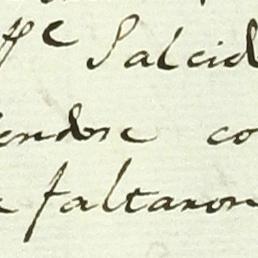 ff.e Salcid
endose co
e faltaron